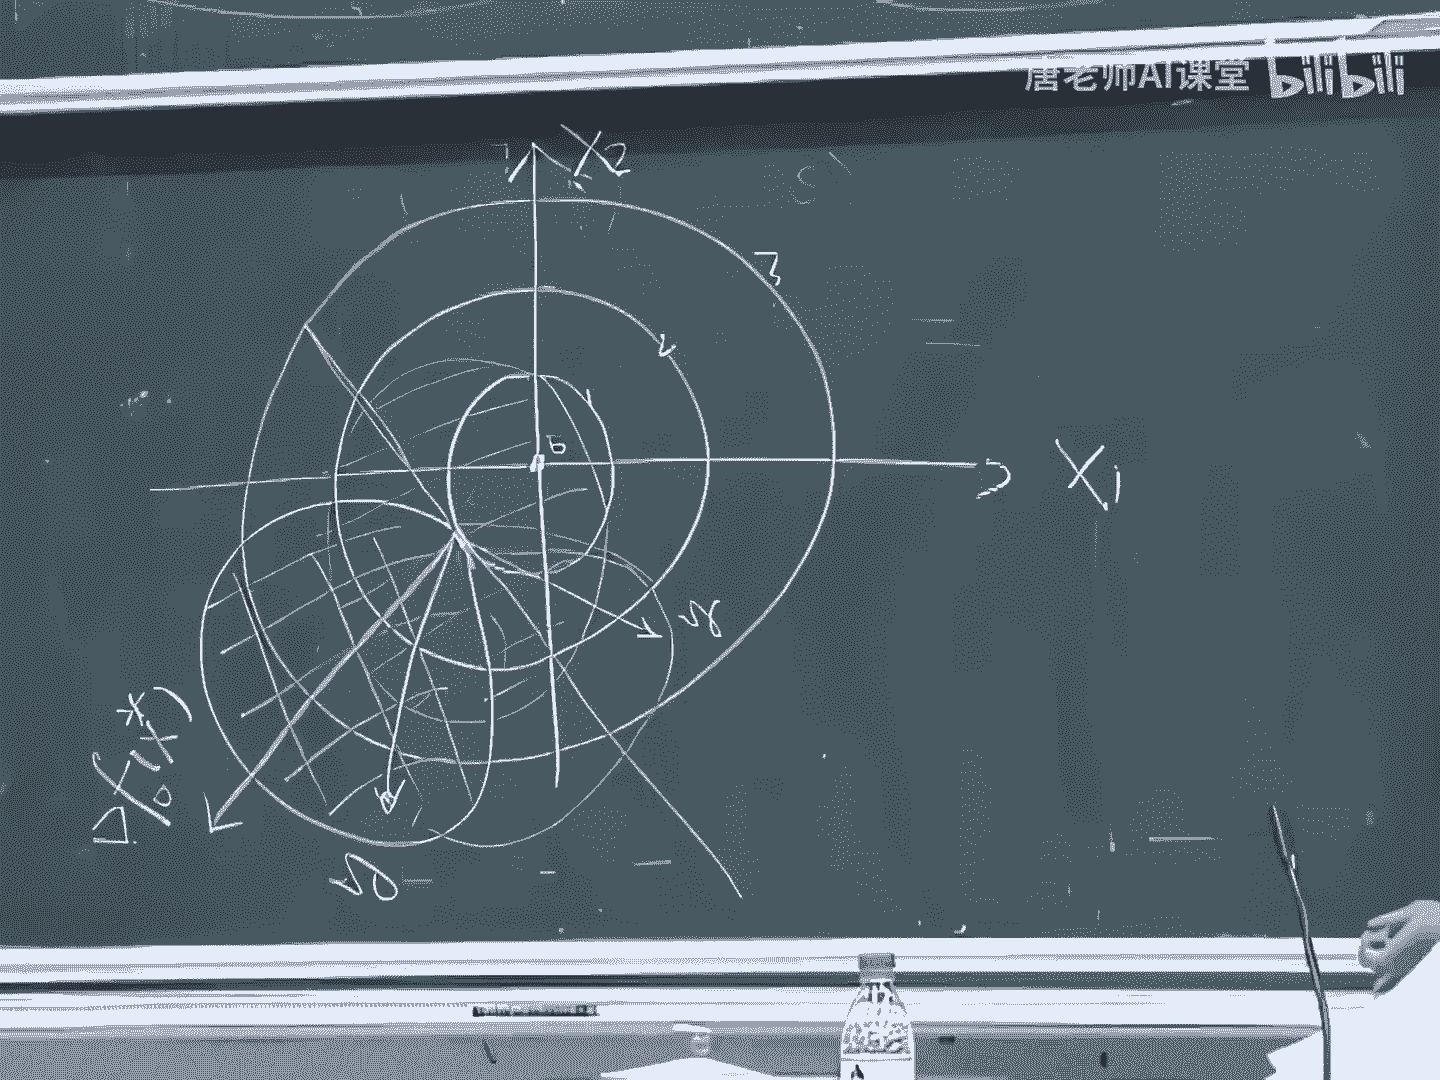 唐老师AI课堂 bilibili
X₂
3
2
1
0
X₁
y
∇f₀(x*)
y